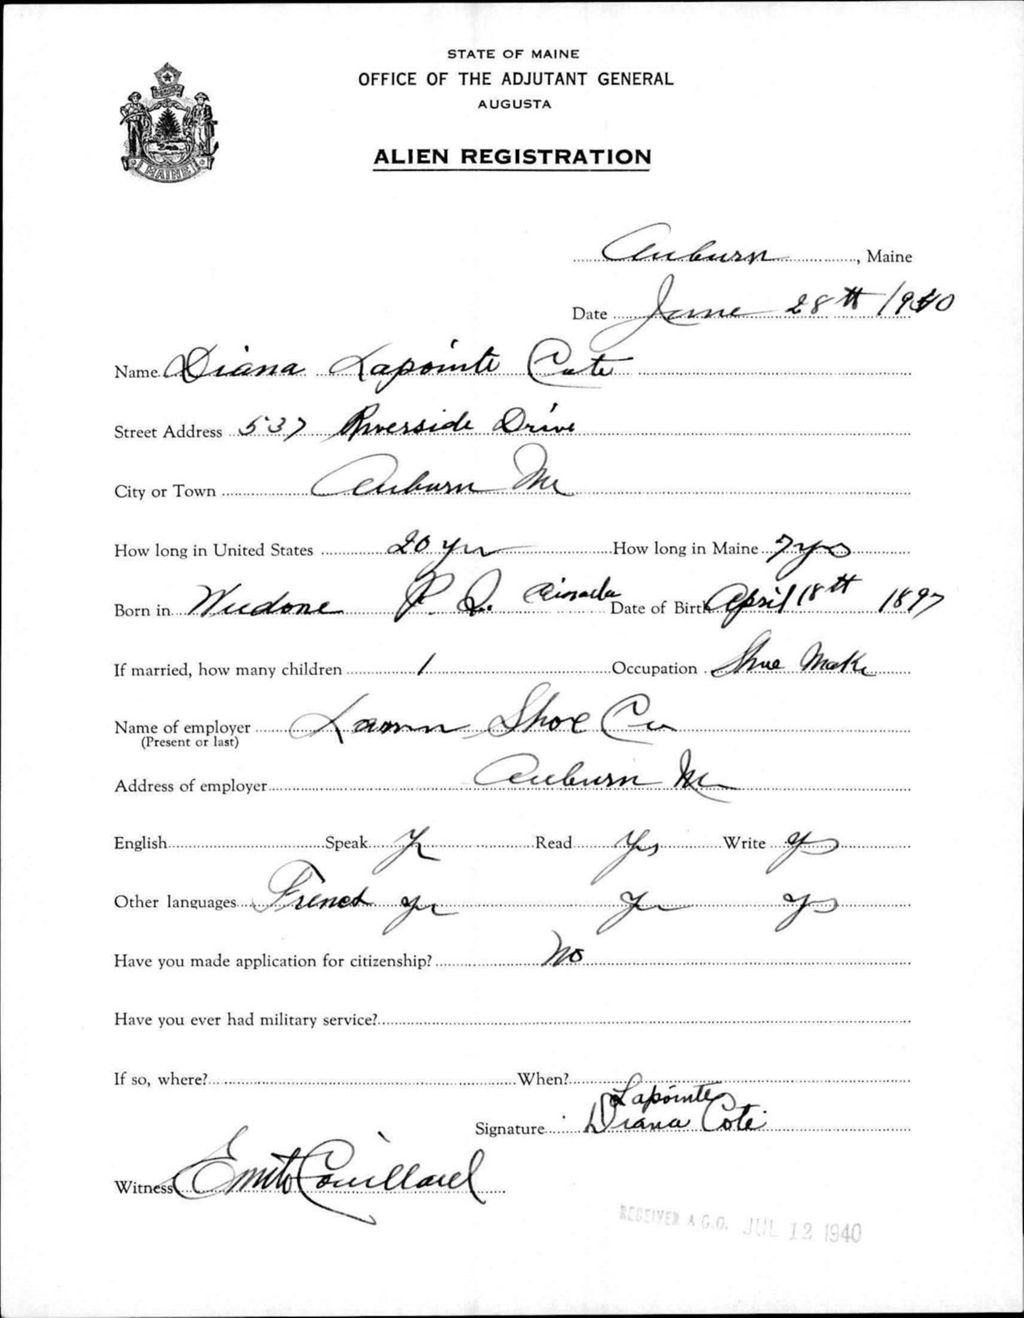 STATE OF MAINE
OFFICE OF THE ADJUTANT GENERAL
AUGUSTA
MAINE
ALIEN REGISTRATION
Auburn, Maine
Date June 28th 1940
Name Diana Lapointe Cote
Street Address 537 Riverside Drive
City or Town Auburn Me
How long in United States 20 yrs How long in Maine 7 yrs
Born in P. Q. Canada Date of Birth April 18th 1897
If married, how many children 1 Occupation Shoe
Name of employer Shoe Co
(Present or last)
Address of employer Auburn Me
English Speak Yes Read Yes Write Yes
Other languages French Yes Yes Yes
Have you made application for citizenship? No
Have you ever had military service?
If so, where? When?
Lapointe
Signature Diana Coté
Witness Couillard
RECEIVED A.G.O. JUL 12 1940